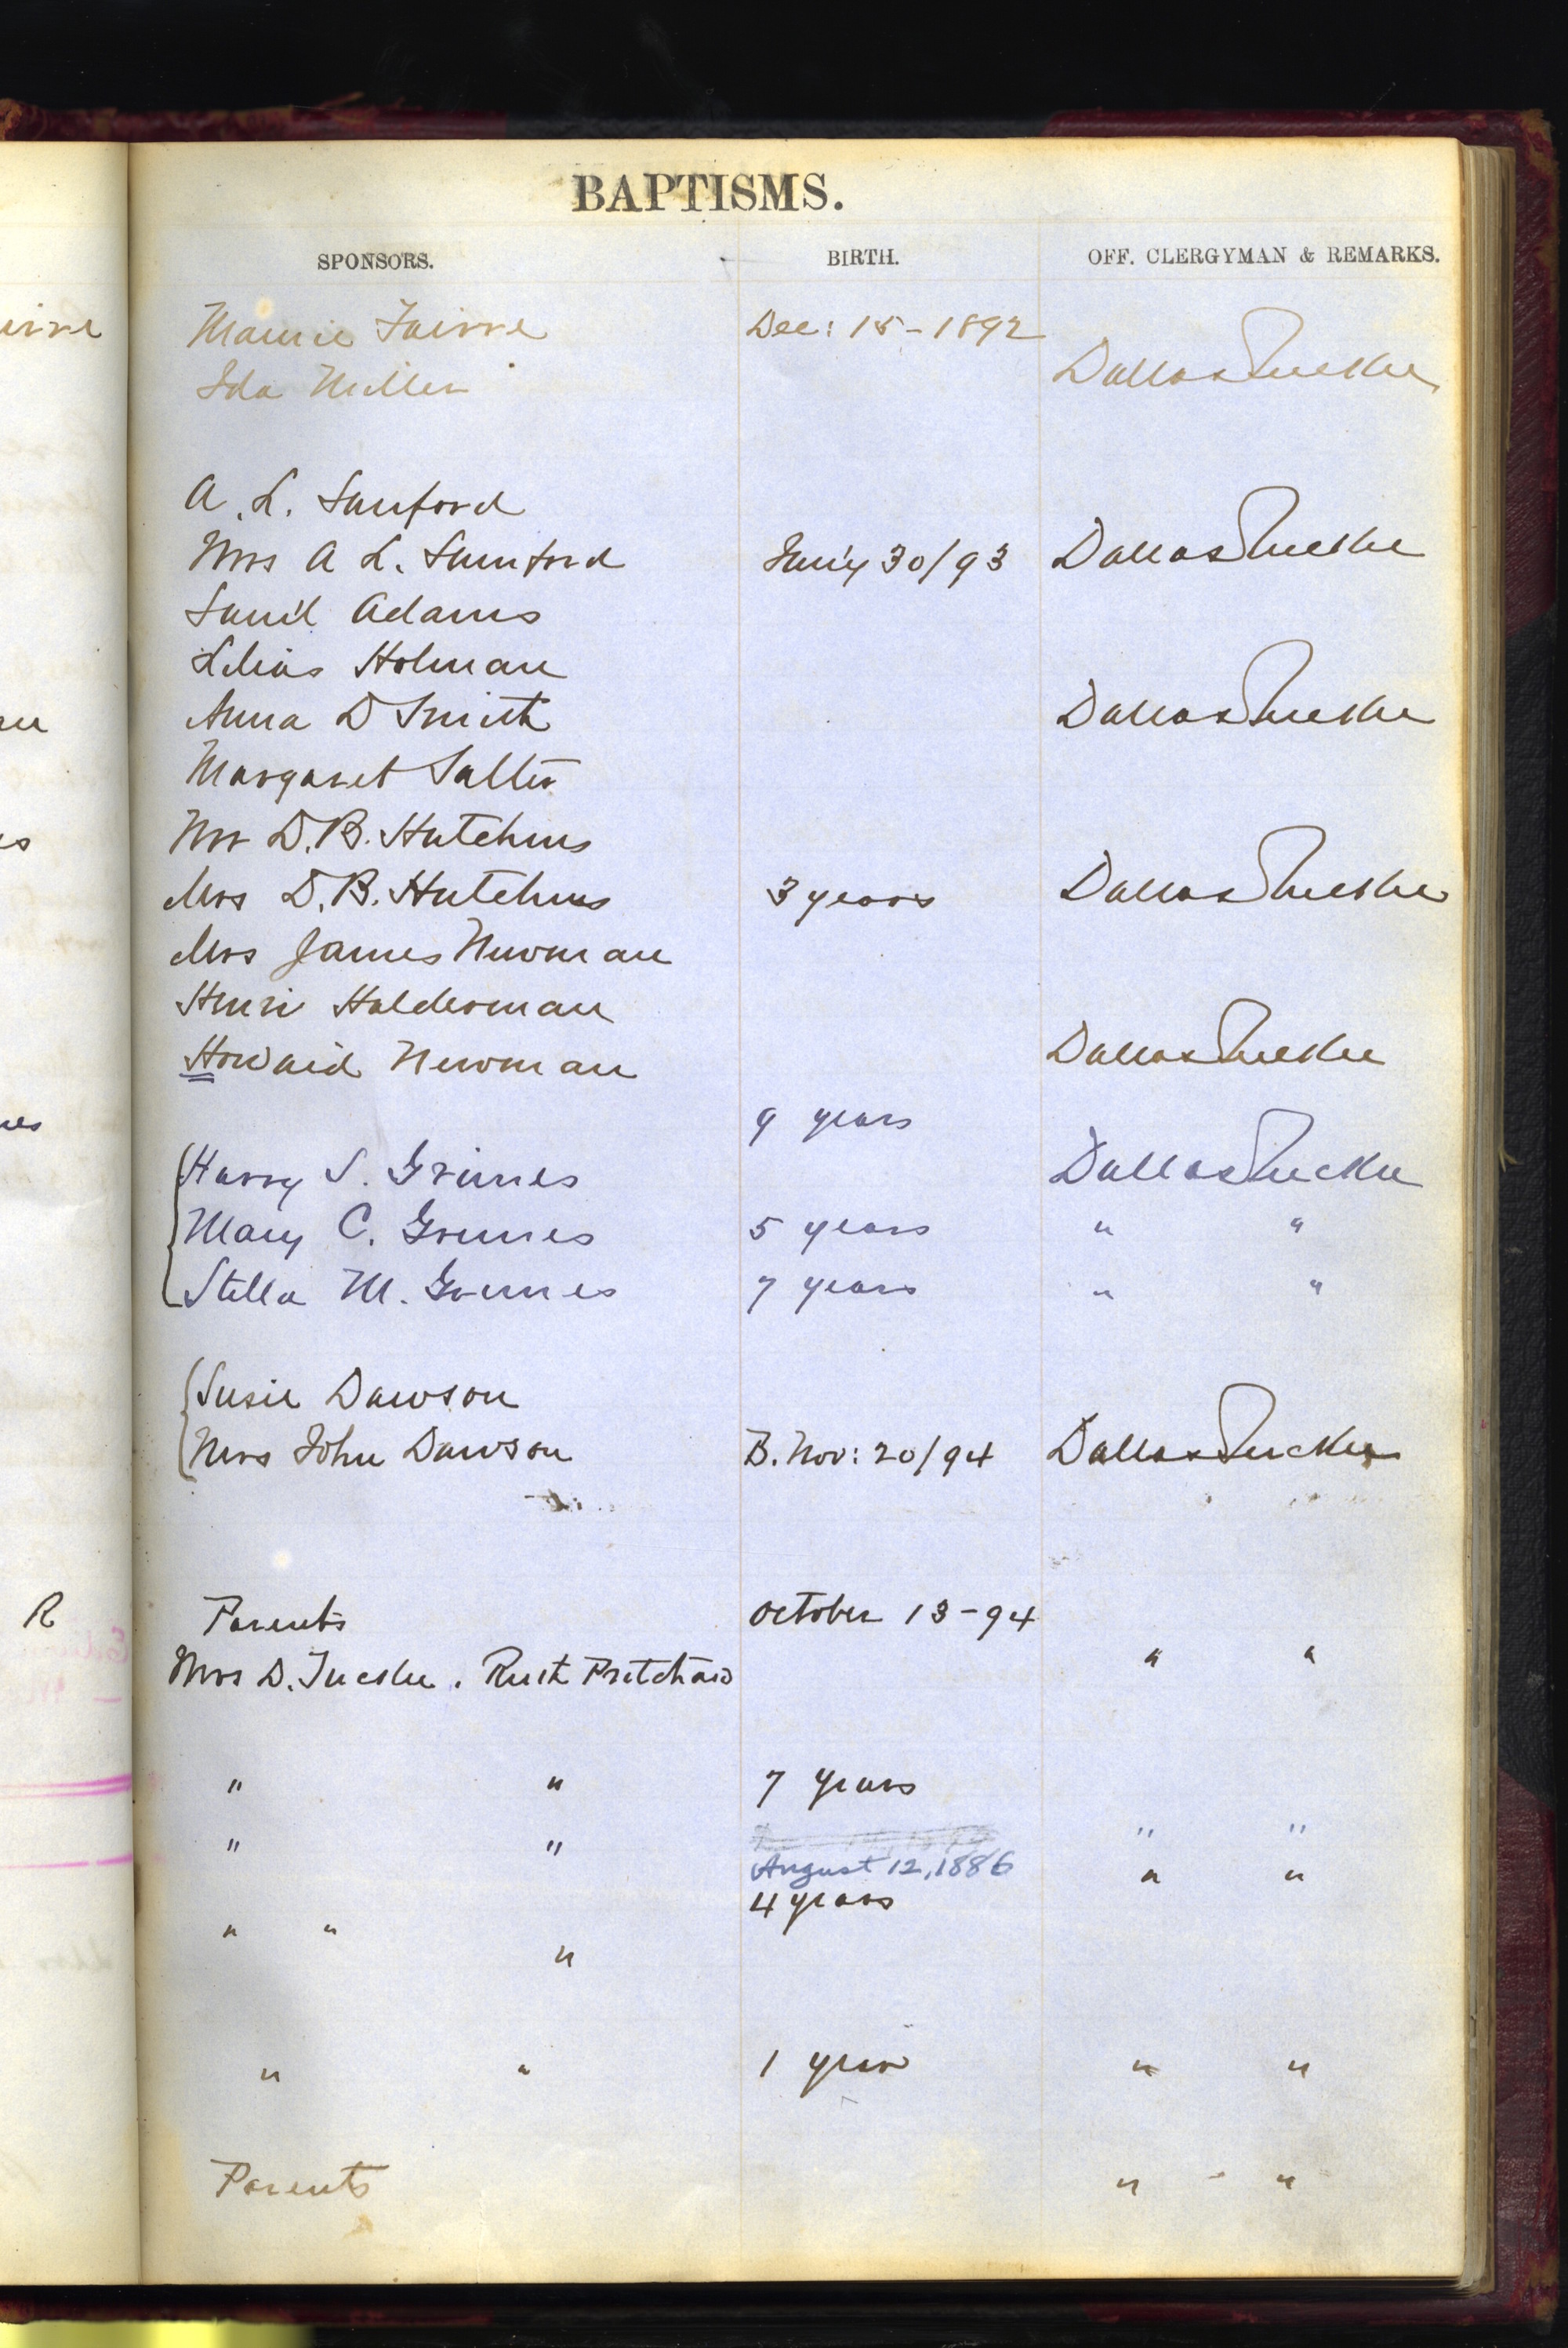 BAPTISMS.
SPONSORS. BIRTH. OFF. CLERGYMAN & REMARKS.
Mamie Dec: 15 - 1892
Ida Miller Dallas Tucker
A. L. Sanford
Mrs A L. Sanford 30/93 Dallas Tucker
Sam'l Adams
Holman
Anna D Smith Dallas Tucker
Margaret Salter
Mr D. B. Hutchins
Mrs D. B. Hutchins 3 years Dallas Tucker
Mrs James Newman
Halderman
Howard Newman Dallas Tucker
9 years
Harry S. Grimes Dallas Tucker
Mary C. Grimes 5 years " "
Stella M. Grimes 7 years " "
Susie Dawson
Mrs John Dawson B. Nov: 20/94 Dallas Tucker
R
Parents October 13-94
Mrs D. Tucker. Ruth Pritchard " "
" " 7 years
" " " "
August 12, 1886 " "
4 years
" " "
" " 1 year " "
Parents " "